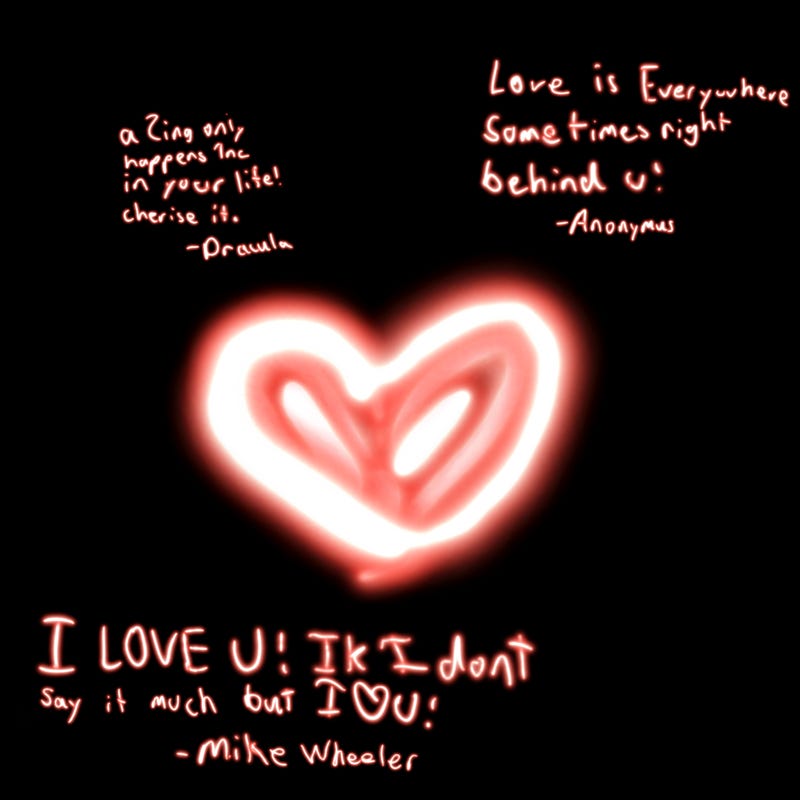 a Zing only
happens 1nc
in your life!
cherise it.
-Dracula
Love is Everywhere
Sometimes right
behind u!
-Anonymus
I LOVE U! Ik I dont
say it much but I ♡ U!
-Mike Wheeler